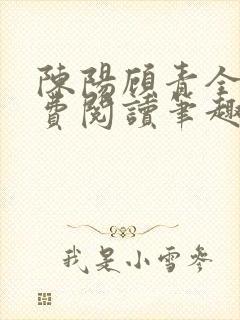 陳陽顧青全
費閱讀筆趣
我是小雪參